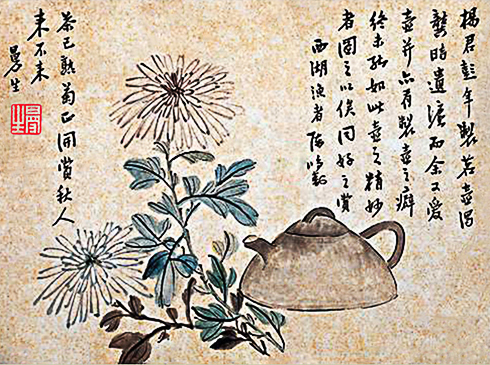 楊君彭年製茗壺得
龔時遺法而余又愛
壺并亦有製壺之癖
終未能如此壺之精妙
者圖之以俟同好之賞
西湖漁者陳鴻壽
茶已熟菊正開賞秋人
来不来
曼生
曼生